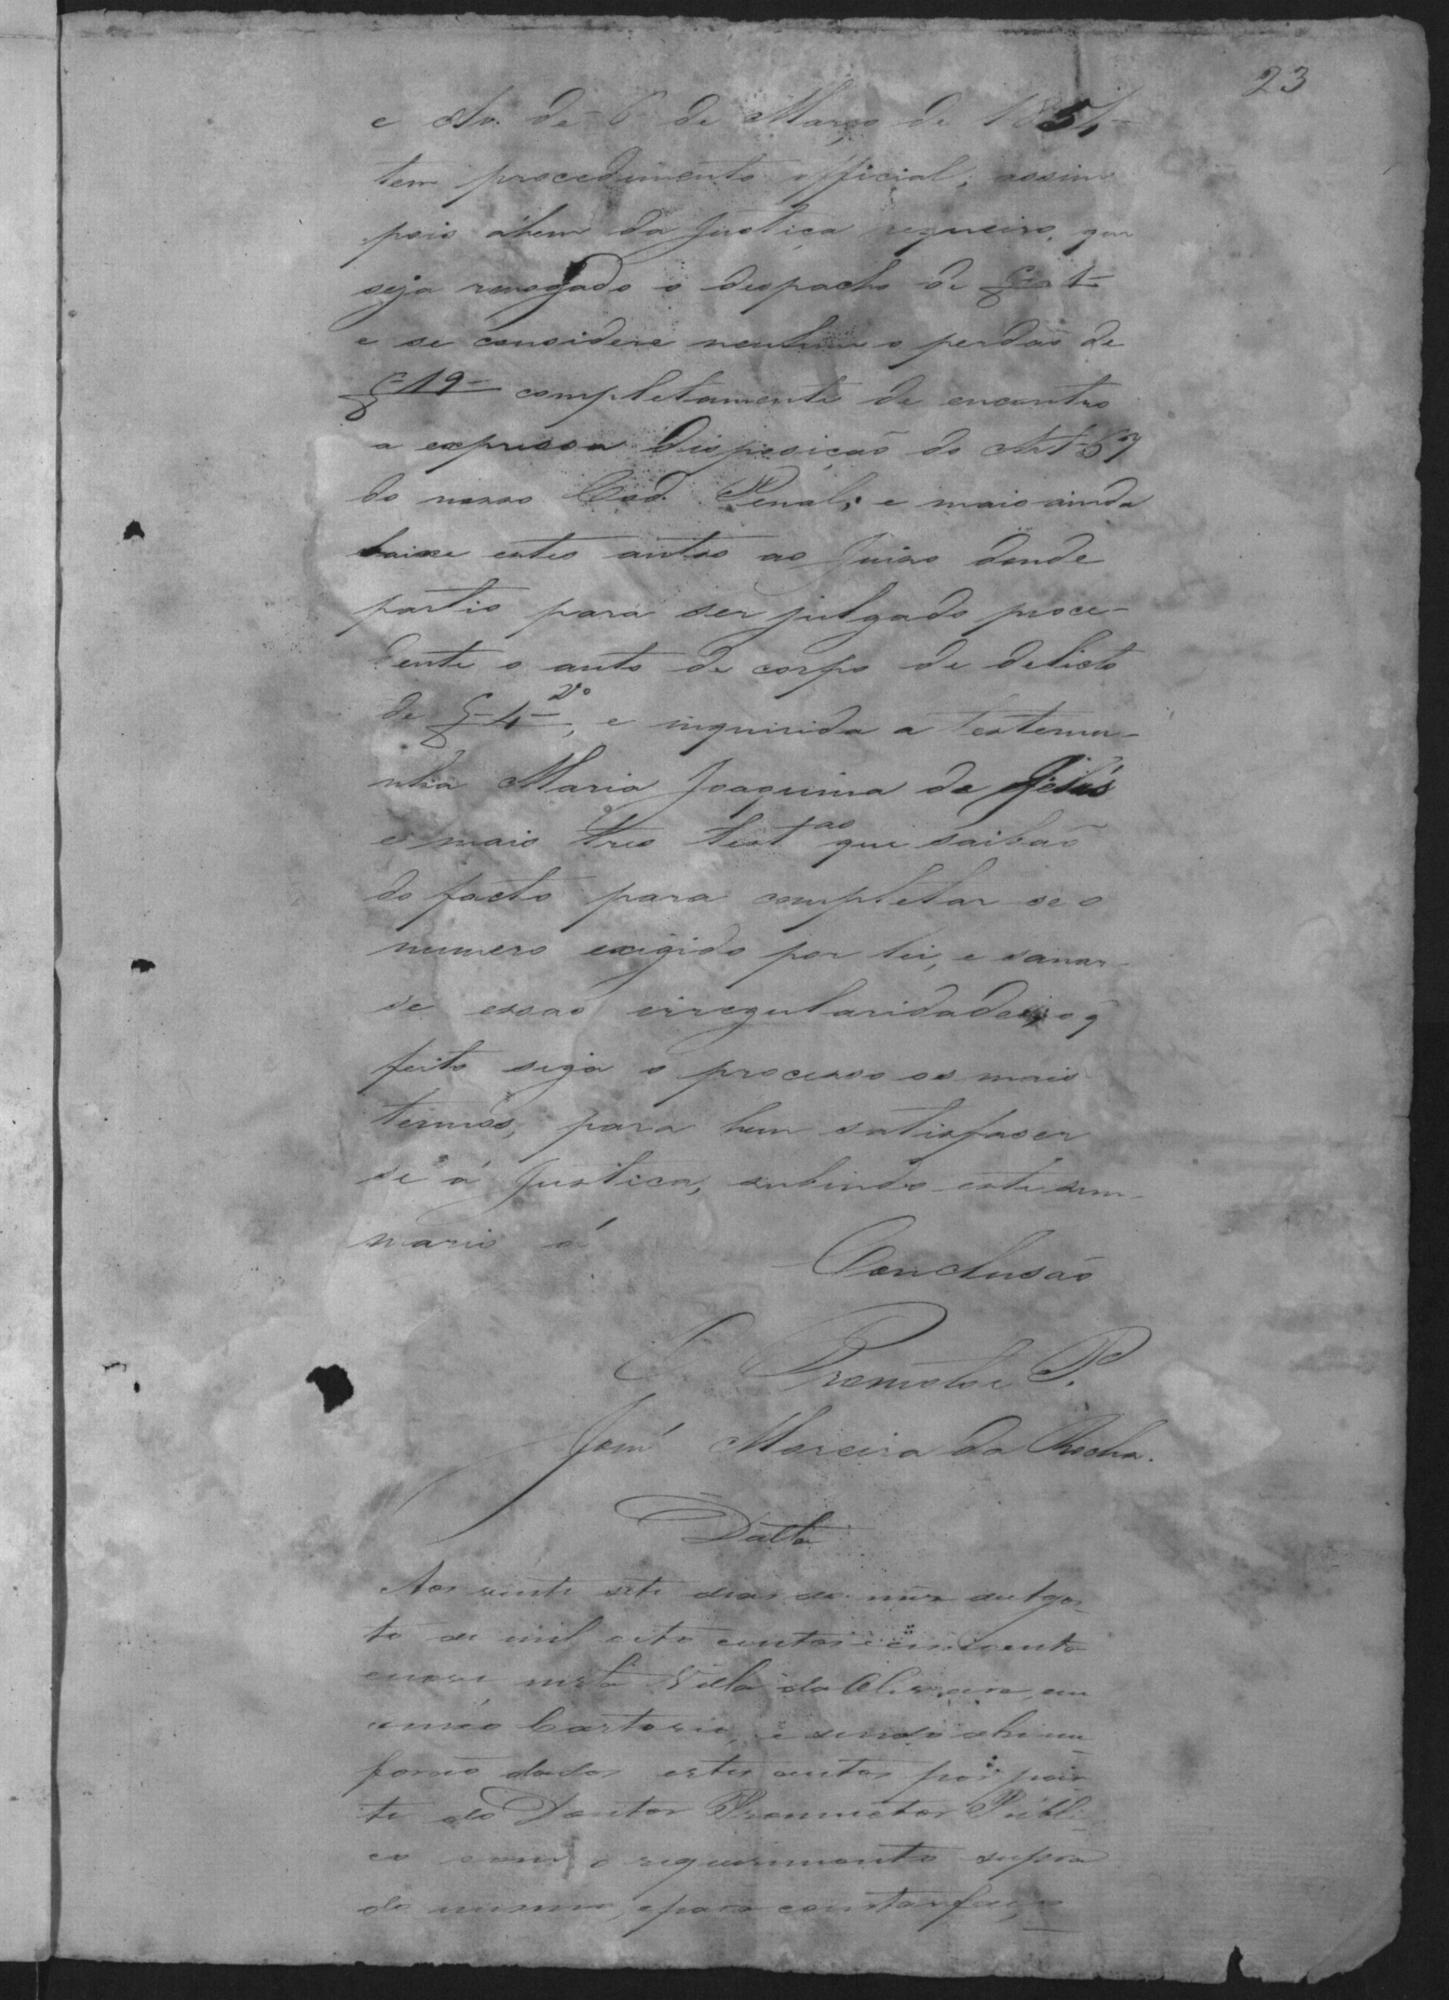 23
e Av. de 6 de Março de 1854
tem procedimento official; assim
pois abem da Justiça requeiro, que
seja revogado o despacho de
e se considere nenhum o perdão de
f 19 completamente de encontro
a expressa disposição do Art 67
do nosso Cod. Penal; e mais ainda
baixe estes autos ao Juizo donde
partio para ser julgado proce-
dente o auto de corpo de delicto
de f 4 vo, e inquirida a testemu-
nha Maria Joaquina de Jesus
e mais tres testas que saibão
do facto para completar se o
numero exigido por lei, e sanar
se essas irregularidades, o q
feito siga o processo os mais
termos, para bem satisfaser
se á Justica, subindo este sum-
mario á
Conclusão
O Promotor P.
José Moreira da Rocha.
Datta
Aos vinte sete dias do mez de Agos-
to de mil oito centos e cincoenta
nesta Villa da em
Cartorio, e sendo ahi me
forão dados estes autos por par-
te do Doutor Promuctor Publi-
co com o requerimento supra
do mesmo, e para constar faço